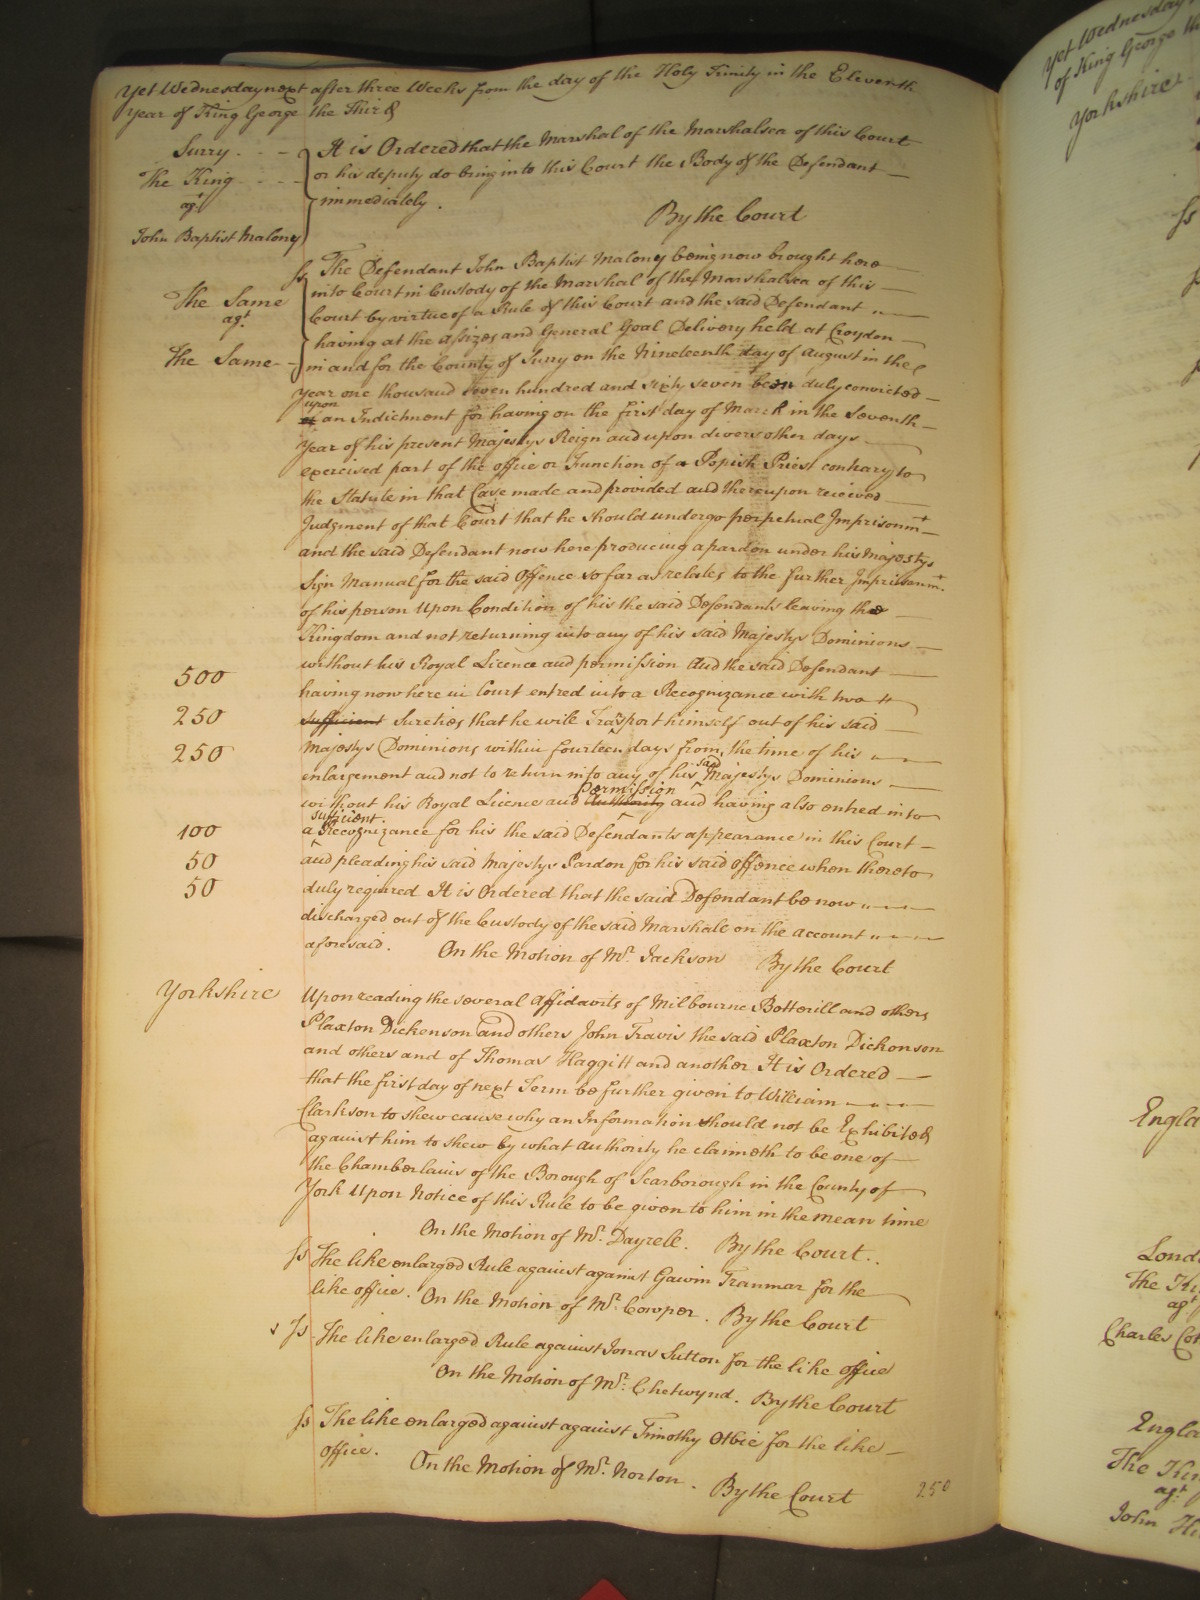 Yet Wednesday next after three Weeks from the day of the Holy Trinity in the Eleventh
Year of King George the Third
Surry
The King
agt
John Baptist Malony
It is Ordered that the Marshal of the Marshalsea of this Court
or his deputy do bring into this Court the Body of the Defendant
immediately.
By the Court
The Same
agt
The Same
Ss The Defendant John Baptist Malony being now brought here
into Court in Custody of the Marshal of the Marshalsea of this
Court by virtue of a Rule of this Court and the said Defendant
having at the assizes and General Goal Delivery held at Croydon
in and for the County of Surry on the Nineteenth day of August in the
year one thousand seven hundred and sixty seven been duly convicted
upon
an Indictment for having on the first day of March in the Seventh
Year of his present Majestys Reign and upon divers other days
exercised part of the office or Function of a Popish Priest contrary to
the Statute in that Case made and provided and thereupon received
Judgment of that Court that he should undergo perpetual Imprisonmt
and the said Defendant now here producing a pardon under his Majestys
Sign Manual for the said Offence so far as relates to the further Imprisonmt.
of his person Upon Condition of his the said Defendants leaving the
Kingdom and not returning into any of his said Majestys Dominions
without his Royal Licence and permission And the said Defendant
500
having now here in Court entred into a Recognizance with two
250
sufficient Sureties that he will Transport himself out of his said
250
Majestys Dominions within fourteen days from the time of his
said
enlargement and not to return into any of his Majestys Dominions
permission
without his Royal Licence and Authority and having also entred into
sufficient
100
a Recognizance for his the said Defendants appearance in this Court
50
and pleading his said Majestys Pardon for his said offence when thereto
50
duly required It is Ordered that the said Defendant be now
discharged out of the Custody of the said Marshall on the account
aforesaid. On the Motion of Mr. Jackson By the Court
Yorkshire
Upon reading the several affidavits of Milbourne Botterill and others
Plaxton Dickenson and others John Travis the said Plaxton Dickonson
and others and of Thomas Haggitt and another It is Ordered
that the first day of next Term be further given to William
Clarkson to shew cause why an Information should not be Exhibited
against him to shew by what Authority he claimeth to be one of
the Chamberlains of the Borough of Scarborough in the County of
York Upon Notice of this Rule to be given to him in the mean time
On the Motion of Mr. Dayrell. By the Court.
Ss The like enlarged Rule against against Gawin Tranmar for the
like office. On the Motion of Mr. Cowper. By the Court
Ss The like enlarged Rule against Jonas Sutton for the like office
On the Motion of Mr. Chetwynd. By the Court
Ss The like enlarged against against Timothy Otbie for the like
office. On the Motion of Mr. Norton. By the Court
250
Yet Wednesday
of King George
Yorkshire
Engla
Lond
The Ki
agt
Charles Co
Engla
The Kin
agt
John H